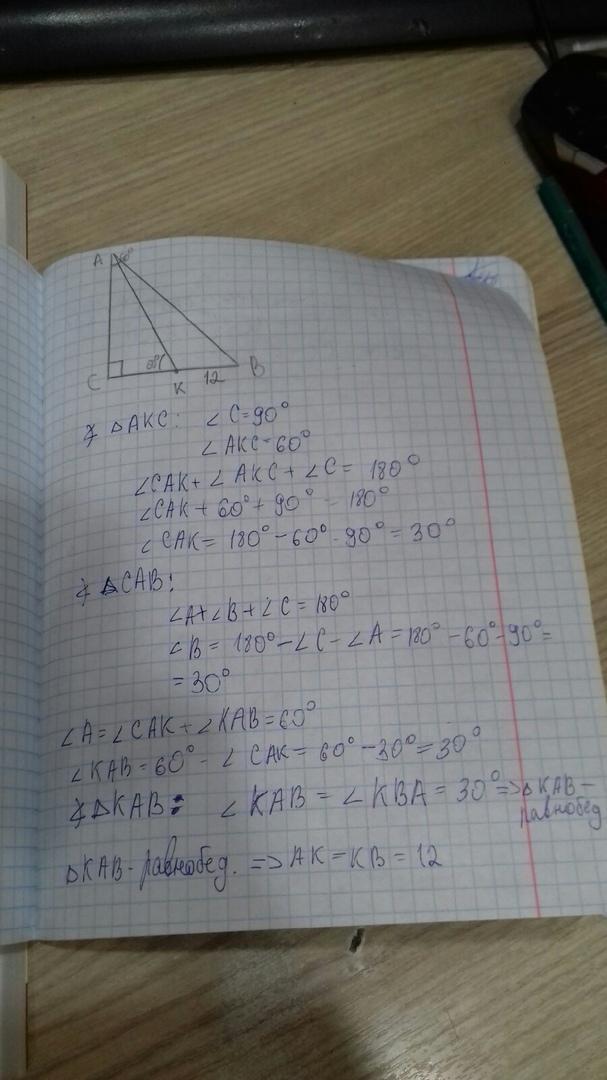 A 60°
C K 12 B
∠ ΔAKC: ∠C=90°
∠AKC=60°
∠CAK+∠AKC+∠C=180°
∠CAK+60°+90°=180°
∠CAK=180°-60°-90°=30°
∠ ΔCAB:
∠A+∠B+∠C=180°
∠B=180°-∠C-∠A=180°-60°-90°=
=30°
∠A=∠CAK+∠KAB=60°
∠KAB=60°-∠CAK=60°-30°=30°
∠ ΔKAB: ∠KAB=∠KBA=30°=>ΔKAB-
равнобед
ΔKAB-равнобед. =>AK=KB=12